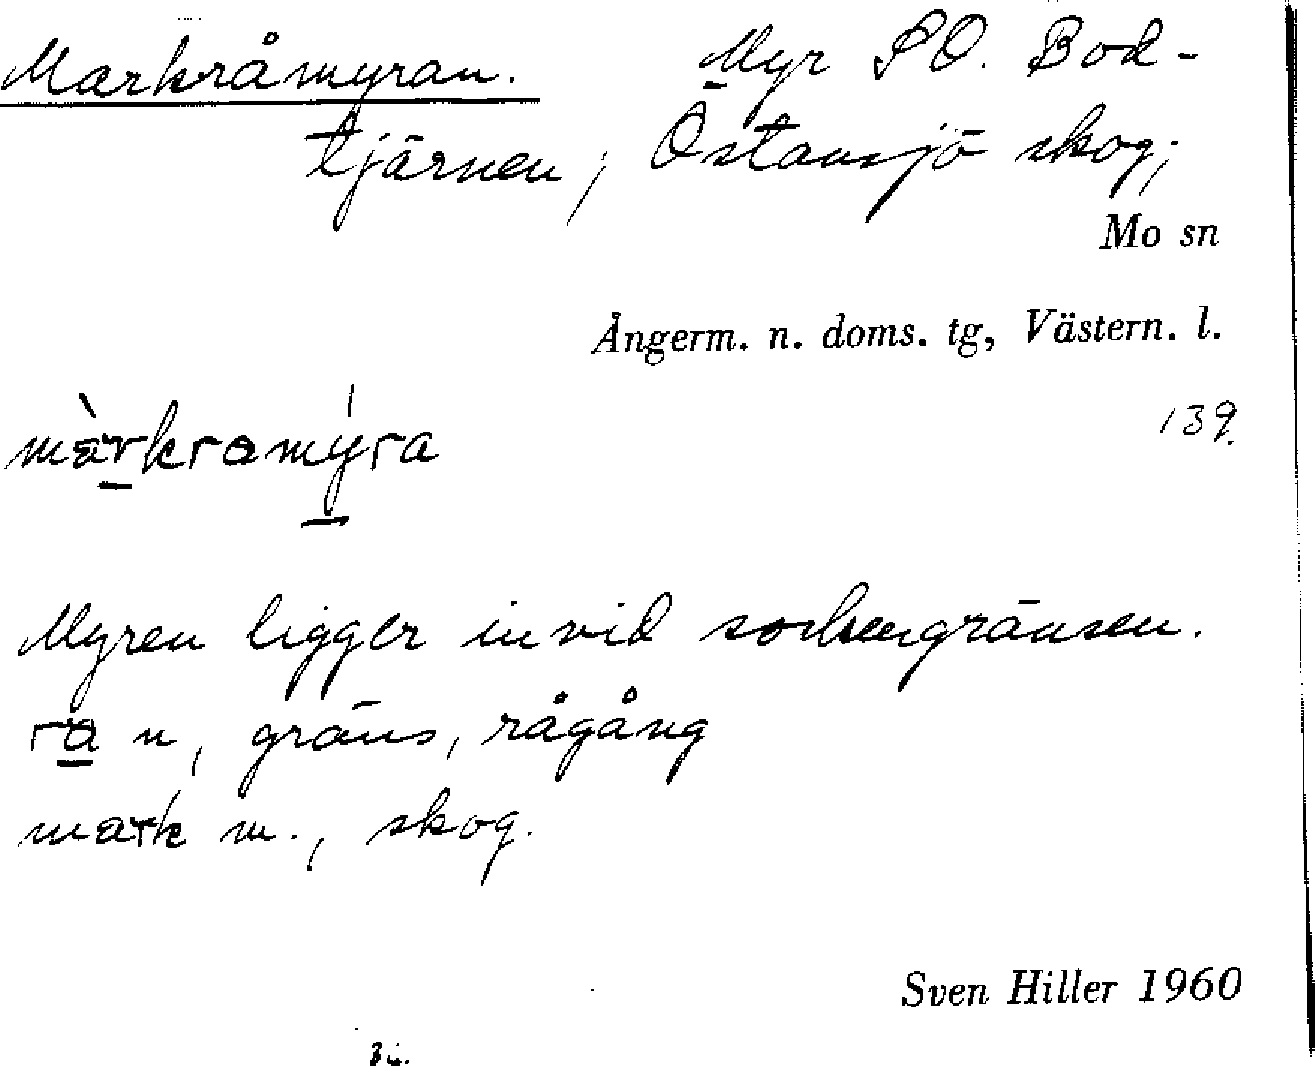 Markråmyran. Myr SO. Bod-
tjärnen, Östansjö skog;
Mo sn
Ångerm. n. doms. tg, Västern. l.
139.
màrkramýra
Myren ligger invid sockengränsen.
ra n, gräns, rågång
mark m., skog.
Sven Hiller 1960